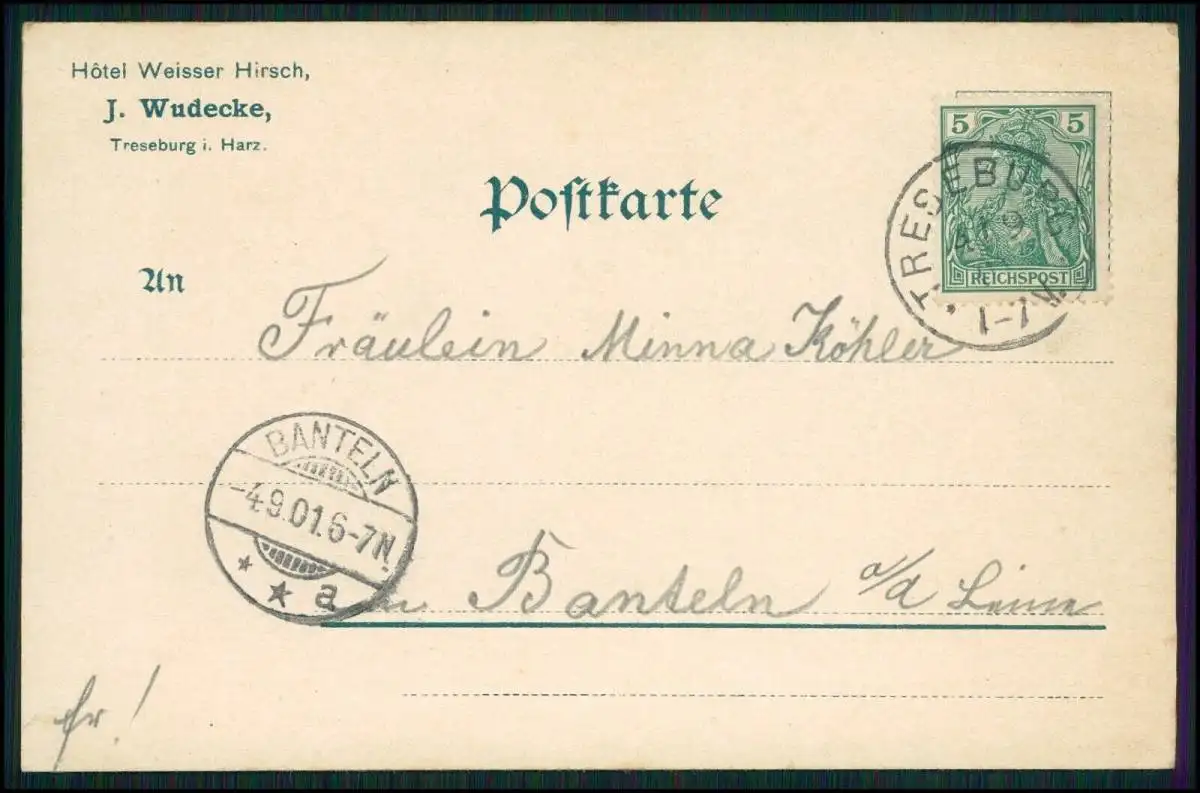 Hôtel Weisser Hirsch,
J. Wudecke,
Treseburg i. Harz.
5 5
REICHSPOST
TRESEBURG
4 9
1-7 N.
Postkarte
An
Fräulein Minna Köhler
BANTELN
-4.9.01.6-7N.
* * a
in Banteln a/d Leine